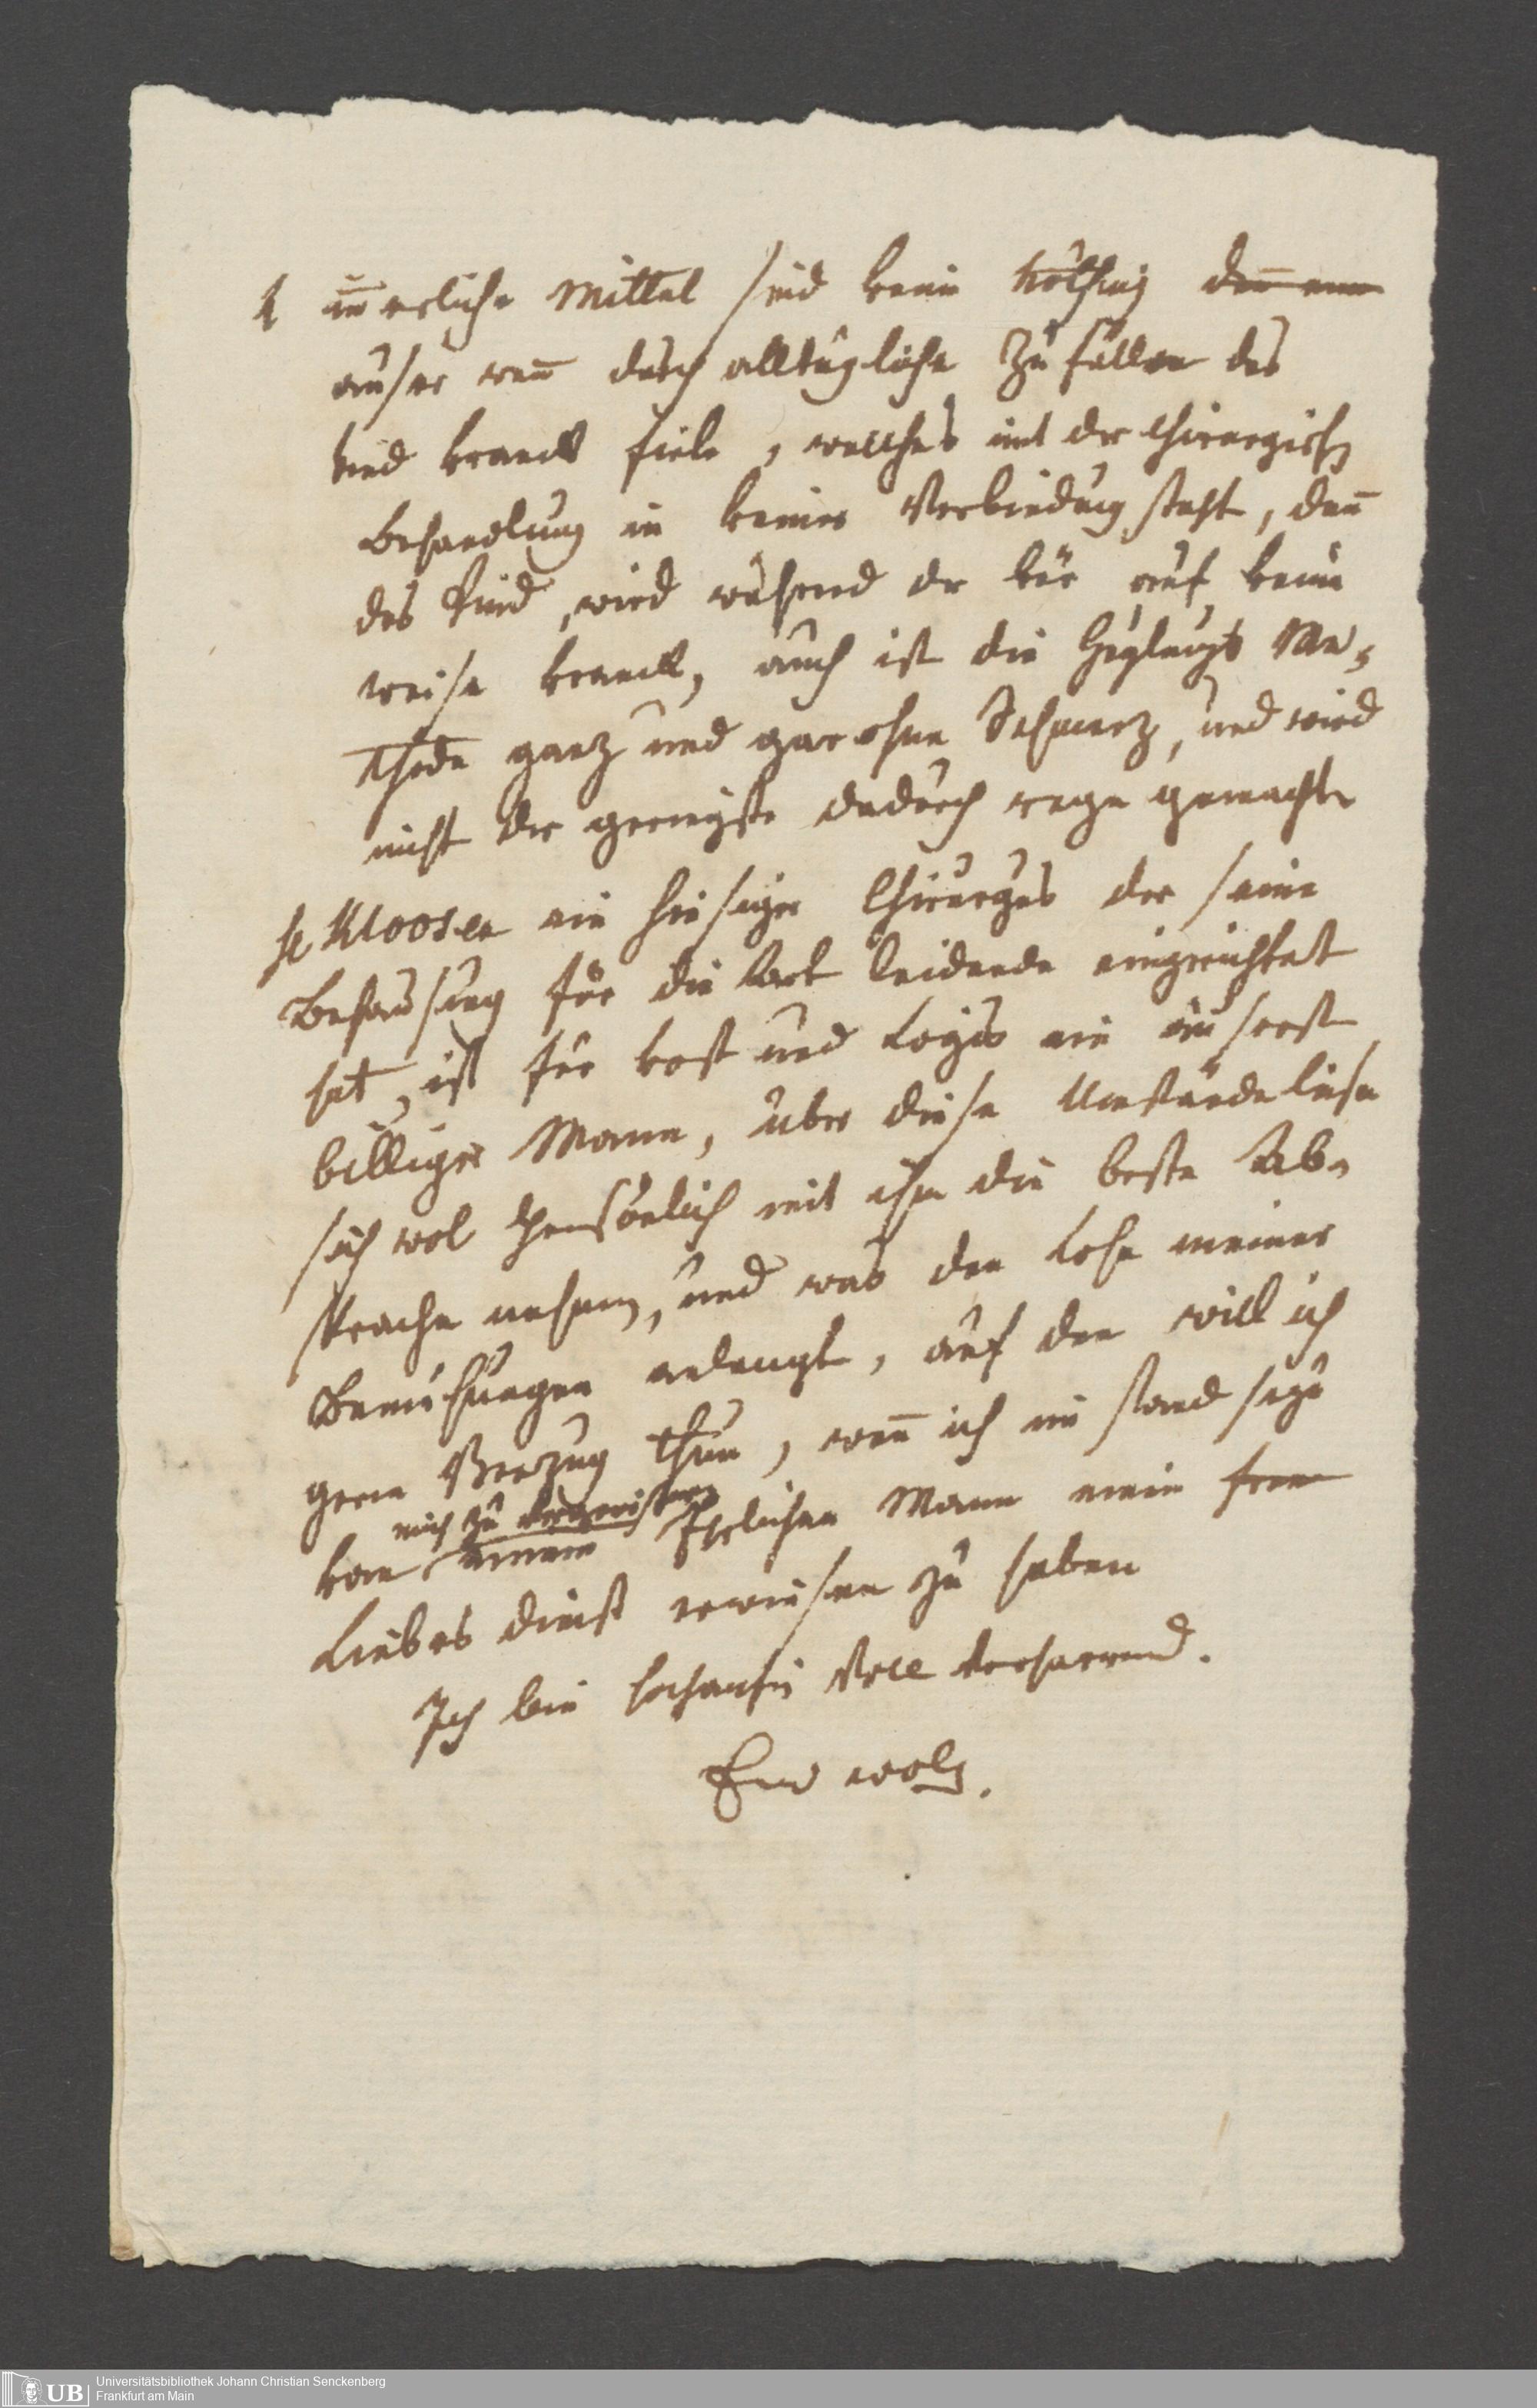 innerliche Mittel sind keine nöthig denn nun
auser wenn durch alltägliche Zufällen das
kind kranck fiele, welches mit der Chirurgisch
Behandlung in keiner Verbindung steht, denn
das kind wird während der kur auf keine
weise kranck, auch ist die Me¬
thode ganz und gar ohne Schmerz, und wird
nicht der geringste dadurch rege gemacht
H Kloosen ein hiesiger Chirurgus der seine
Behausung für die Art leidende eingerichtet
hat, ist für kost und Logis ein äuserst
billiger Mann, über diese Umstände liese
sich wol Persönlich mit ihm die beste Ab¬
sprache nehmen, und was den Lohn meiner
Bemühungen anlangt, auf den will ich
gern Verzug thun, wenn ich im stand seyn
mich zu
kan einem Ehrlichen Mann einen
Liebes dienst erwiesen zu haben
Ich bin hochachtungs Voll verharrend.
Euer wolg.
Universitätsbibliothek Johann Christian Senckenberg
Frankfurt am Main
UB